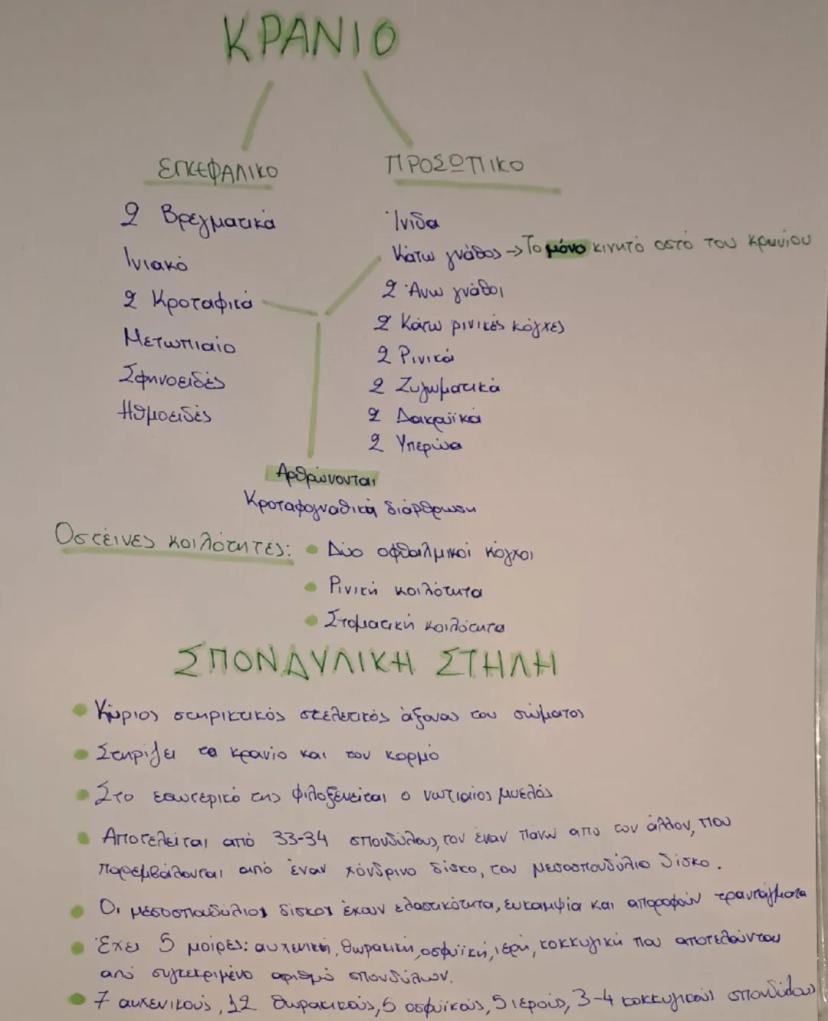 ΚΡΑΝΙΟ
ΕΓΚΕΦΑΛΙΚΟ
2 Βρεγματικά
Ινιακό
2 Κροταφικά
Μετωπιαίο
Σφηνοειδές
Ηθμοειδές
ΠΡΟΣΩΠΙΚΟ
Ίνιδα
Κάτω γνάθος → Το μόνο κινητό οστό του κρανίου
2 Άνω γνάθοι
2 Κάτω ρινικές κόγχες
2 Ρινικά
2 Ζυγωματικά
2 Δακρυϊκά
2 Υπερώια
Αρθρώνονται
Κροταφογναθική διάρθρωση
Οστέινες κοιλότητες:
• Δύο οφθαλμικοί κόγχοι
• Ρινική κοιλότητα
• Στοματική κοιλότητα
ΣΠΟΝΔΥΛΙΚΗ ΣΤΗΛΗ
• Κύριος στηρικτικός σκελετικός άξονας του σώματος
• Στηρίζει το κρανίο και τον κορμό
• Στο εσωτερικό της φιλοξενείται ο νωτιαίος μυελός
• Αποτελείται από 33-34 σπονδύλους, τον έναν πάνω από τον άλλον, που
παρεμβάλονται από έναν χόνδρινο δίσκο, τον μεσοσπονδύλιο δίσκο.
• Οι μεσοσπονδύλιοι δίσκοι έχουν ελαστικότητα, ευκαμψία και απορροφούν τραντάγματα
• Έχει 5 μοίρες: αυχενική, θωρακική, οσφυϊκή, ιερή, κοκκυγική που αποτελούνται
από συγκεκριμένο αριθμό σπονδύλων.
• 7 αυχενικούς, 12 θωρακικούς, 5 οσφυϊκούς, 5 ιερούς, 3-4 κοκκυγικούς σπονδύλους